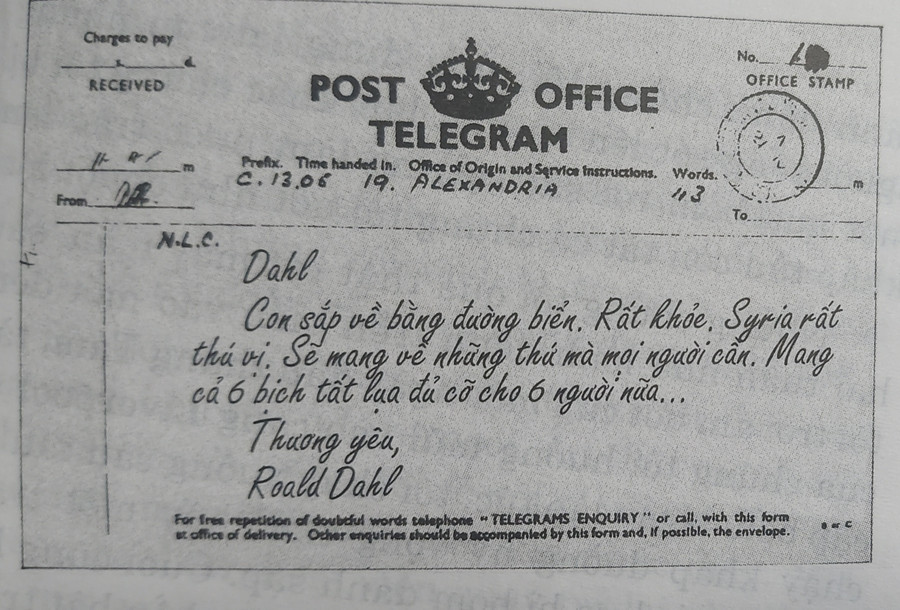 Charges to pay
s. d.
RECEIVED
POST OFFICE
TELEGRAM
No.
OFFICE STAMP
m
From
Prefix. Time handed in. Office of Origin and Service Instructions. Words.
C. 13.06 19. ALEXANDRIA 113
m
To
N.L.C.
Dahl
Con sắp về bằng đường biển. Rất khỏe. Syria rất
thú vị. Sẽ mang về những thú mà mọi người cần. Mang
cả 6 bịch tất lụa đủ cỡ cho 6 người nữa...
Thương yêu,
Roald Dahl
For free repetition of doubtful words telephone "TELEGRAMS ENQUIRY" or call, with this form
at office of delivery. Other enquiries should be accompanied by this form and, if possible, the envelope.
B or C